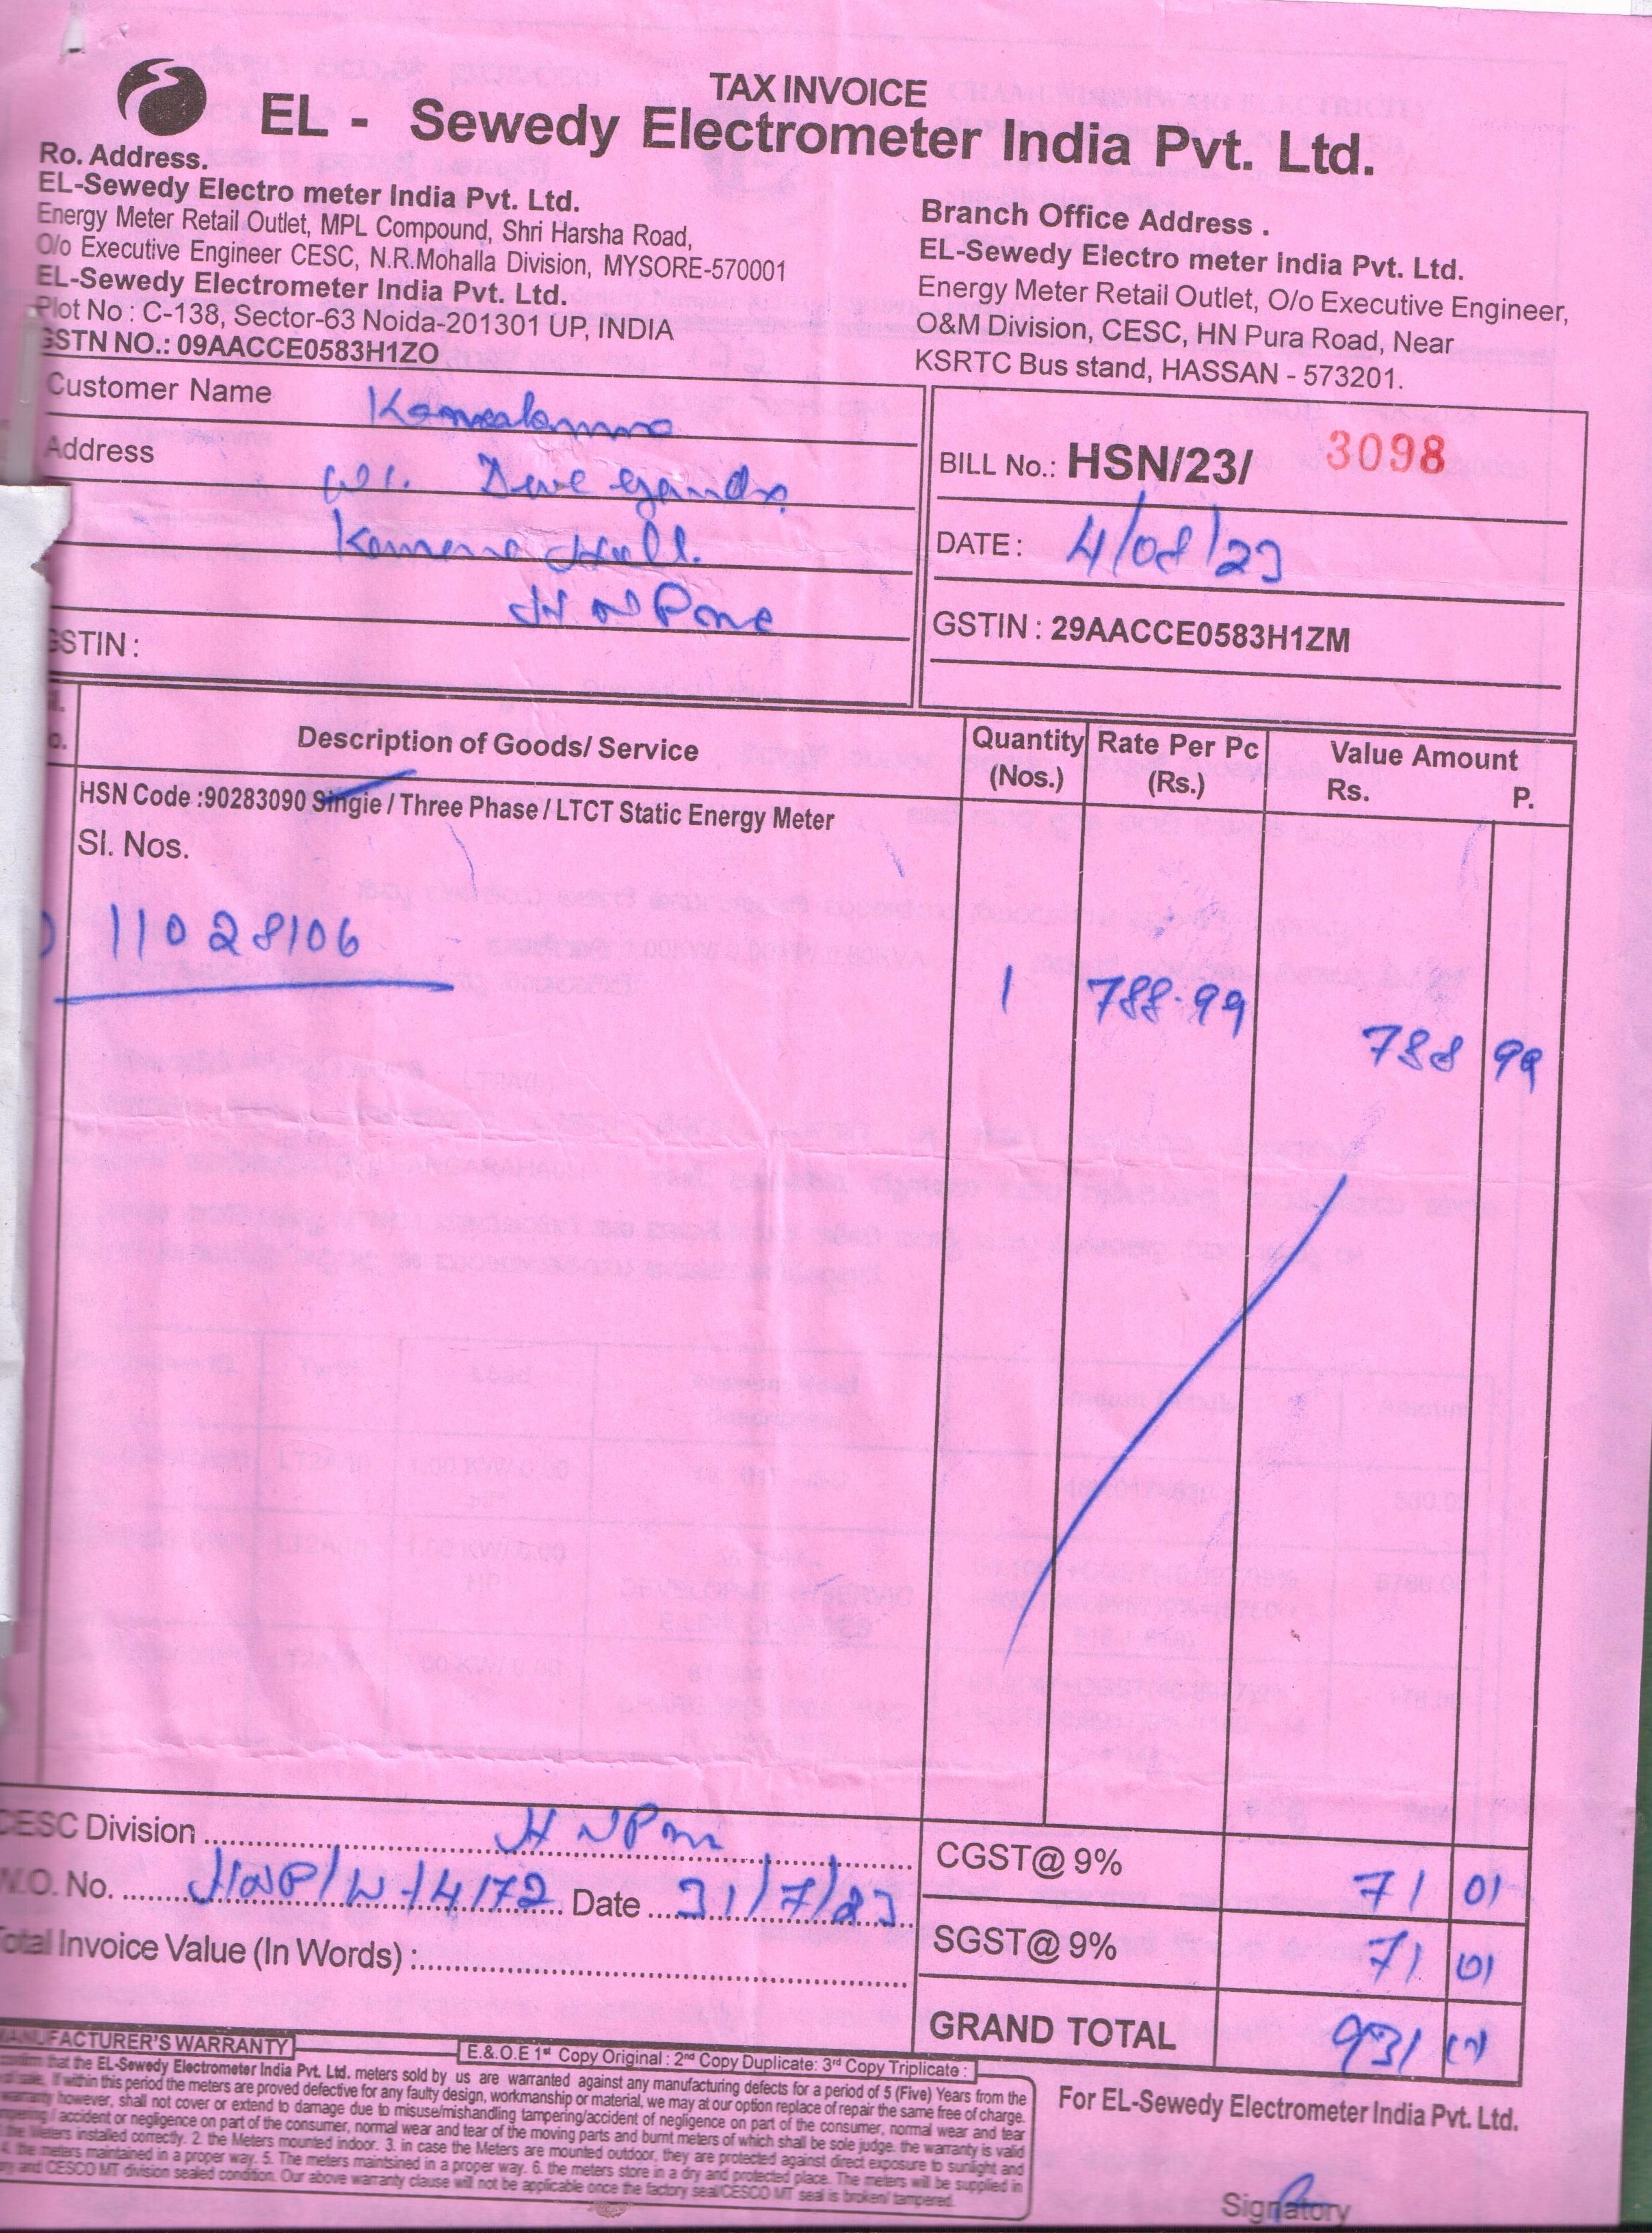 TAX INVOICE
EL - Sewedy Electrometer India Pvt. Ltd.
Ro. Address.
EL-Sewedy Electro meter India Pvt. Ltd.
Energy Meter Retail Outlet, MPL Compound, Shri Harsha Road,
O/o Executive Engineer CESC, N.R.Mohalla Division, MYSORE-570001
EL-Sewedy Electrometer India Pvt. Ltd.
Plot No : C-138, Sector-63 Noida-201301 UP, INDIA
GSTN NO.: 09AACCE0583H1ZO
Branch Office Address .
EL-Sewedy Electro meter India Pvt. Ltd.
Energy Meter Retail Outlet, O/o Executive Engineer,
O&M Division, CESC, HN Pura Road, Near
KSRTC Bus stand, HASSAN - 573201.
Customer Name
Address
GSTIN :
BILL No.: HSN/23/ 3098
DATE : 4/08/23
GSTIN : 29AACCE0583H1ZM
Description of Goods/ Service
Quantity (Nos.)
Rate Per Pc (Rs.)
Value Amount
Rs. P.
HSN Code :90283090 Singie / Three Phase / LTCT Static Energy Meter
Sl. Nos.
11028106 1 788.99 788 99
CESC Division
W.O. No. HNP/W-14172 Date 31/7/23
Total Invoice Value (In Words) :
CGST@ 9% 71 01
SGST@ 9% 71 01
GRAND TOTAL 931
MANUFACTURER'S WARRANTY
E.&.O.E 1st Copy Original : 2nd Copy Duplicate: 3rd Copy Triplicate :
confirm that the EL-Sewedy Electrometer India Pvt. Ltd. meters sold by us are warranted against any manufacturing defects for a period of 5 (Five) Years from the
of sale. If within this period the meters are proved defective for any faulty design, workmanship or material, we may at our option replace of repair the same free of charge.
warranty however, shall not cover or extend to damage due to misuse/mishandling tampering/accident of negligence on part of the consumer, normal wear and tear
/ accident or negligence on part of the consumer, normal wear and tear of the moving parts and burnt meters of which shall be sole judge. the warranty is valid
the Meters installed correctly. 2. the Meters mounted indoor. 3. in case the Meters are mounted outdoor, they are protected against direct exposure to sunlight and
4. the meters maintained in a proper way. 5. The meters maintsined in a proper way. 6. the meters store in a dry and protected place. The meters will be supplied in
and CESCO MT division sealed condition. Our above warranty clause will not be applicable once the factory seal/CESCO MT seal is broken/ tampered.
For EL-Sewedy Electrometer India Pvt. Ltd.
Signatory